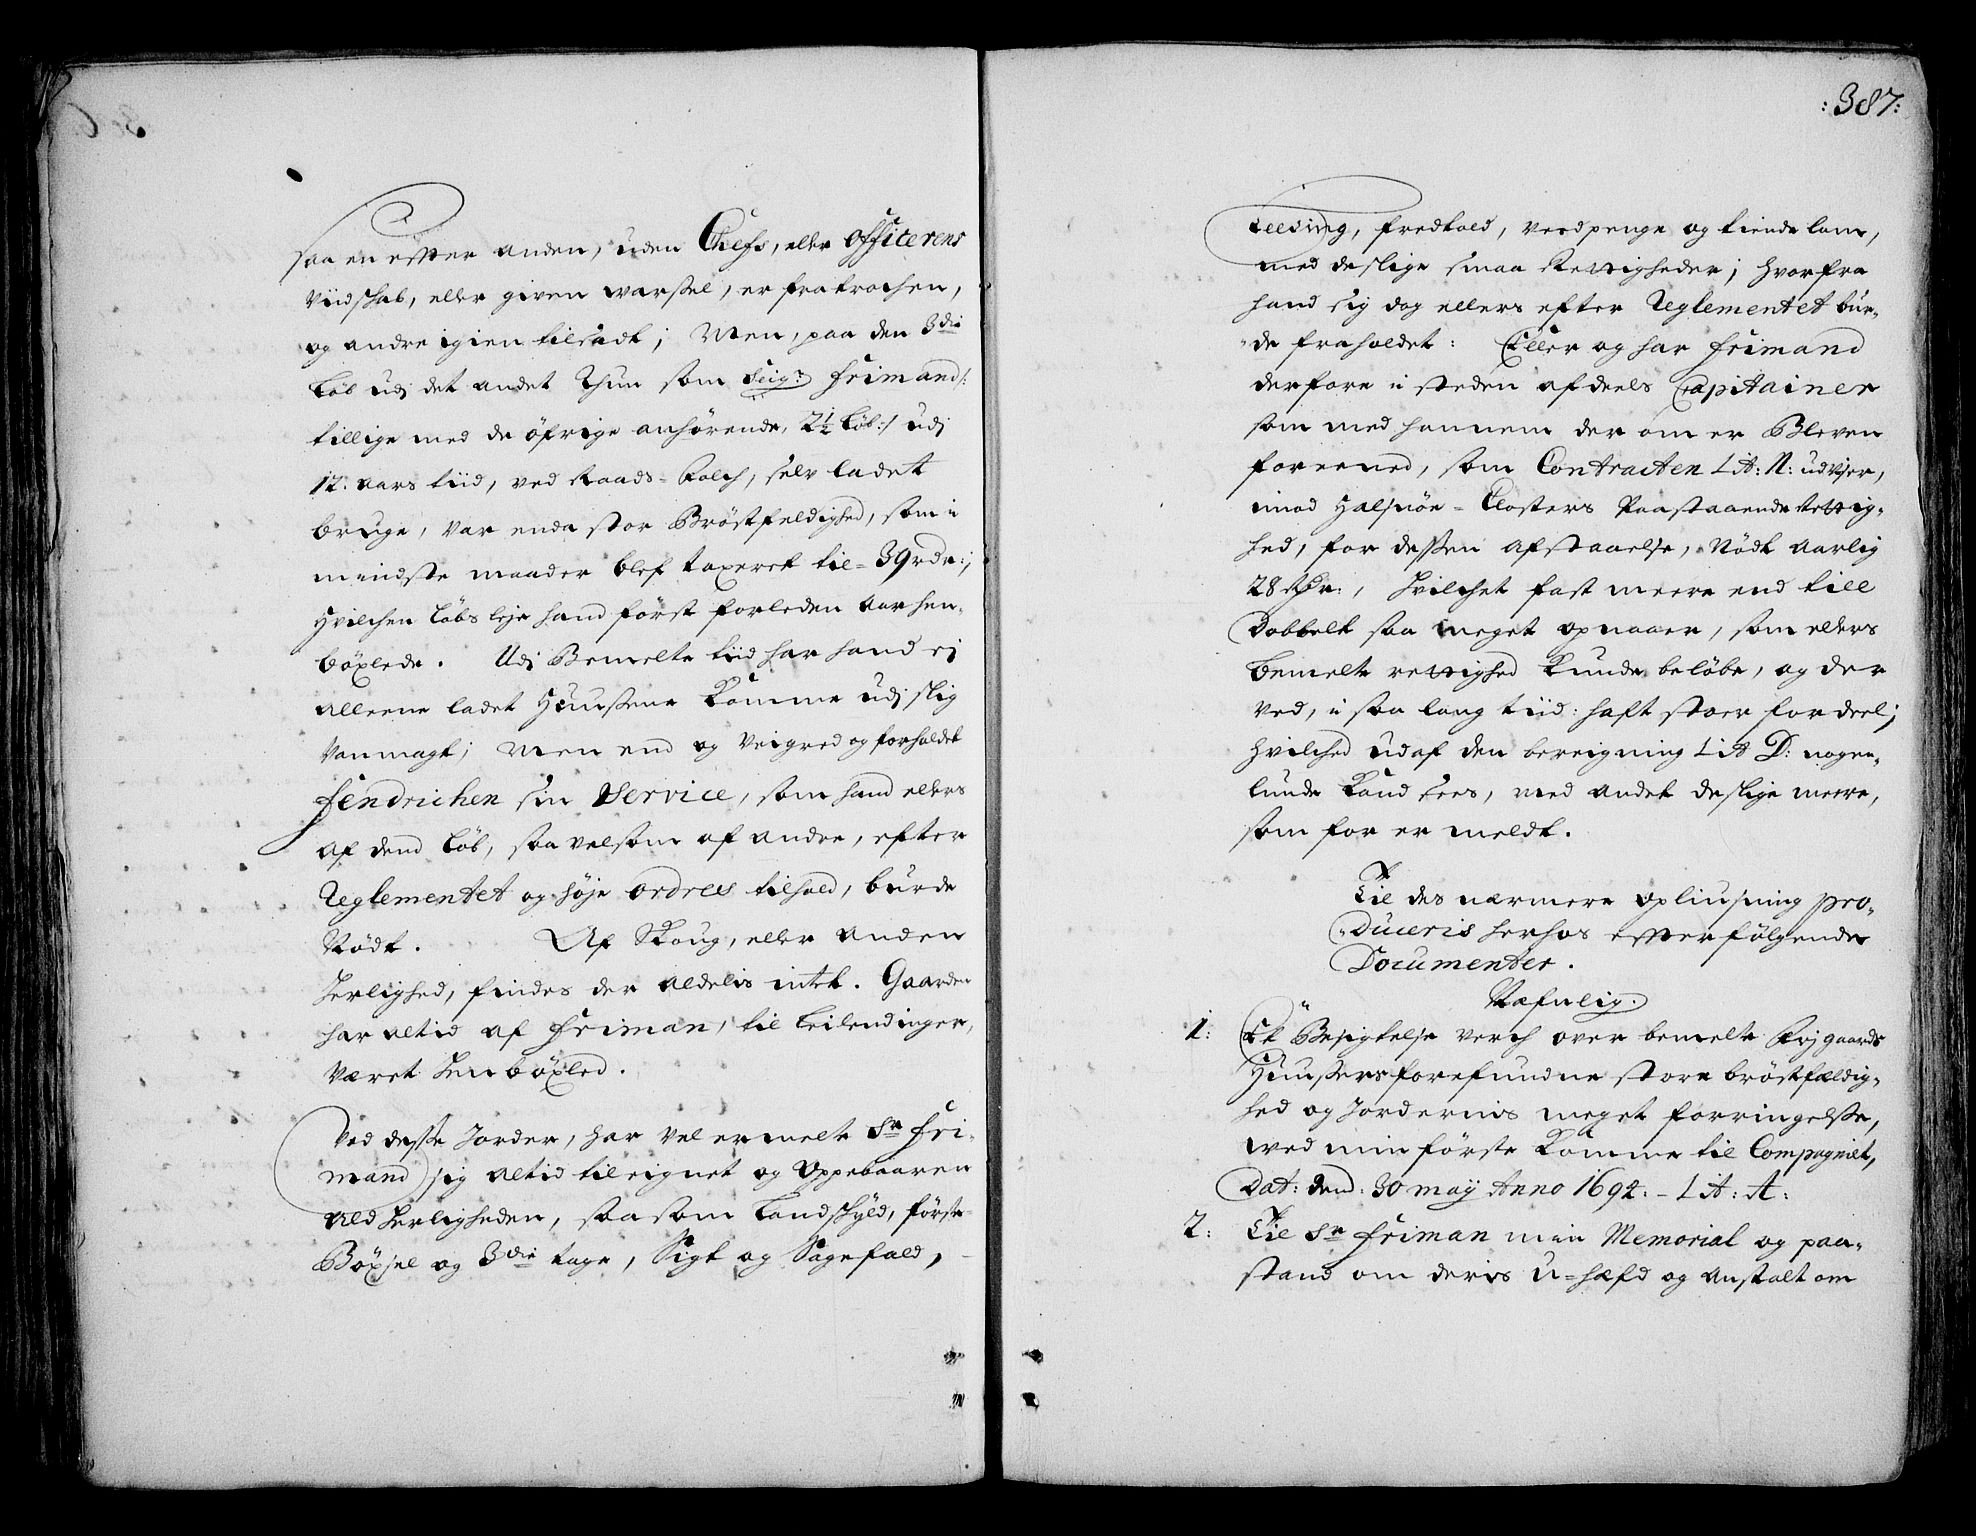 saa en efter anden, uden Chefs, eller Officerens
Viidschab, eller given warssel, er fratrachen,
og andre igien tilsadt; Men, paa den 3die
Løb udj det andet Thun som Seigr. Frimand /:
tillige med de öfrige anhörende, 2½ Løb:/ udj
12. aars tiid, ved Raads-Folch, selv ladet
bruge, var enda stor Bröstfeldighed, som i
mindste maader blef taxeret til - 39 rdr:;
Hvilchen Løbs leje hand först forleden Aar hen-
böxlede. Udj Bemelte tiid har hand ej
alleene ladet Huussene Komme udj slig
Vanmagt; men end og Veigred og forholdet
Fendrichen sin Service, som hand ellers
af dend Løb, saavelsom af andre, efter
Reglementet og höje ordres tilhold, burde
Nödt. Af Skoug, eller anden
Herlighed, findes der aldelis intet. Gaarden
har altid af Friman, til Leilendinger,
Været henböxled.
Ved desse Jorder, har Velermelte Sr Fri-
mand sig altid tileignet og Oppebaaren
Ald Herligheden, saasom Landschyld, förste-
Böxsel og 3die tage, Sigt og Sagefald,
:387:
Leeding, fredtold, Verdpenge og tiende lam,
med deslige smaa Rettigheder; hvorfra
hand sig dog ellers efter Reglementet bur-
de fraholdet: Eller og har Frimand
derfore i steden af deels Capitainer
som med hannem derom er Bleven
foreened, som Contracten Lit: N: udviser,
imod Halsnöe-Closters Paastaaende Rettig-
hed, for dessen afstaaelse, Nödt aarlig
28 Rdr:, Hvilchet fast meere end till
Dobbelt saa meget opnaaer, som ellers
bemelte rettighed Kunde beløbe, og der
ved, i saa lang tiid: haft stoer fordeel;
hvilched udaf den bereigning Lit D: nogen-
lunde Kand sees, med andet deslige meere,
som for er meldt.
Til des nærmere opliusning pro-
duceris herhos efterfölgende
Documenter.
Næfnlig.
1: Et Besigtelse verch over bemelte Rejgaards
Huussers forefundne store bröstfældig-
hed og Jordernis meget forringelsse,
ved min förste Komme til Compagniet,
Dat: den: 30 maÿ Anno 1694: - Lit: A:
2: Til Sr Friman min Memorial og paa-
stand om deris U-hæfd og Anstalt om